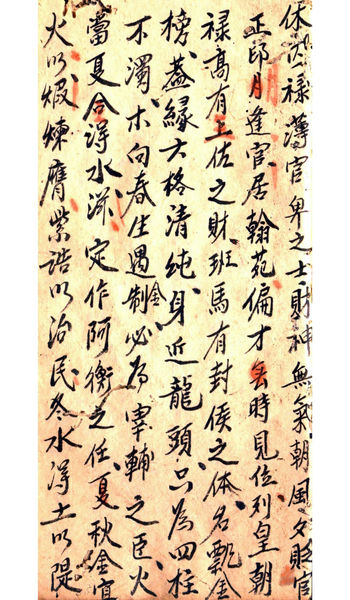 休囚禄薄官卑之士財神無氣朝風夕貶官
正印月逢官居翰苑偏才時見位列皇朝
禄高有王佐之財班馬有封侯之体名金
榜蓋緣六格清純身近龍頭只為四柱
不濁木向春生遇金制必為宰輔之臣火
當夏合得水濟定作阿衡之任夏秋金宜
火以煆煉膺紫誥以治民冬水得土以隄